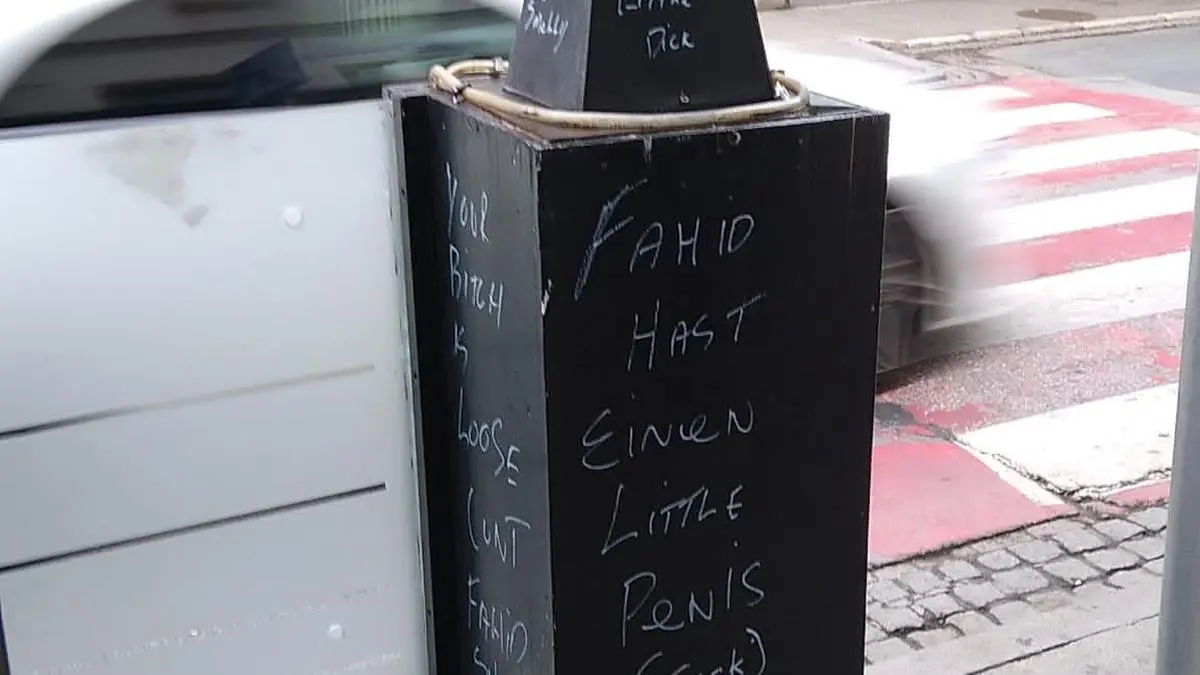 Smelly
Little
Dick
YOUR
BITCH
IS
LOOSE
CUNT
FAHID
FAHID
HAST
EINEN
LITTLE
PENIS